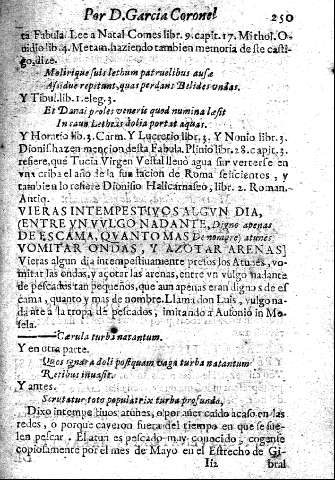 Por D. Garcia Coronel 250
ta Fabula. Lee a Natal Comes libr. 9. capit. 17. Mithol. O-
uidio lib. 4. Metam. haziendo tambien memoria deste casti-
go, dize.
Molirique suis lethum patruelibus ausæ
Assiduè repetunt, quas perdant Belides vndas.
Y Tibul. lib. 1. eleg. 3.
Et Danai proles veneris quod numina læsit
In caua Lethæas dolia portat aquas.
Y Horatio lib. 3. Carm. Y Lucretio libr. 3. Y Nonio libr. 3.
Dionis. hazen mencion desta Fabula. Plinio libr. 28. capit. 3.
refiere, que Tucia Virgen Vestal lleuó agua sin verterse en
vna criba el año de la fundacion de Roma seiscientos, y
tambien lo refiere Dionisio Halicarnaseo, libr. 2. Roman.
Antiq.
VIERAS INTEMPESTIVOS ALGVN DIA,
(ENTRE VN VVLGO NADANTE, Digno apenas
DE ESCAMA, QVANTO MAS De nombre) atunes
VOMITAR ONDAS, Y AZOTAR ARENAS]
Vieras algun dia intempestiuamente presos los Atunes, vo-
mitar las ondas, y açotar las arenas, entre vn vulgo nadante
de pescados tan pequeños, que aun apenas eran dignos de es-
cama, quanto y mas de nombre. Llama don Luis, vulgo na-
dante a la tropa de pescados, imitando a Ausonio in Mo-
sela.
Cærula turba natantum.
Y en otra parte.
Vbos ignara doli postquam vaga turba natantum
Retibus inuasit.
Y antes.
Scrutatur toto populatrix turba profundo,
Dixo intempestiuos atunes, o por auer caido acaso en las
redes, o porque cayeron fuera del tiempo en que se sue-
len pescar. El atun es pescado muy conocido, cogense
copiosamente por el mes de Mayo en el Estrecho de Gi-
Ii2 bral